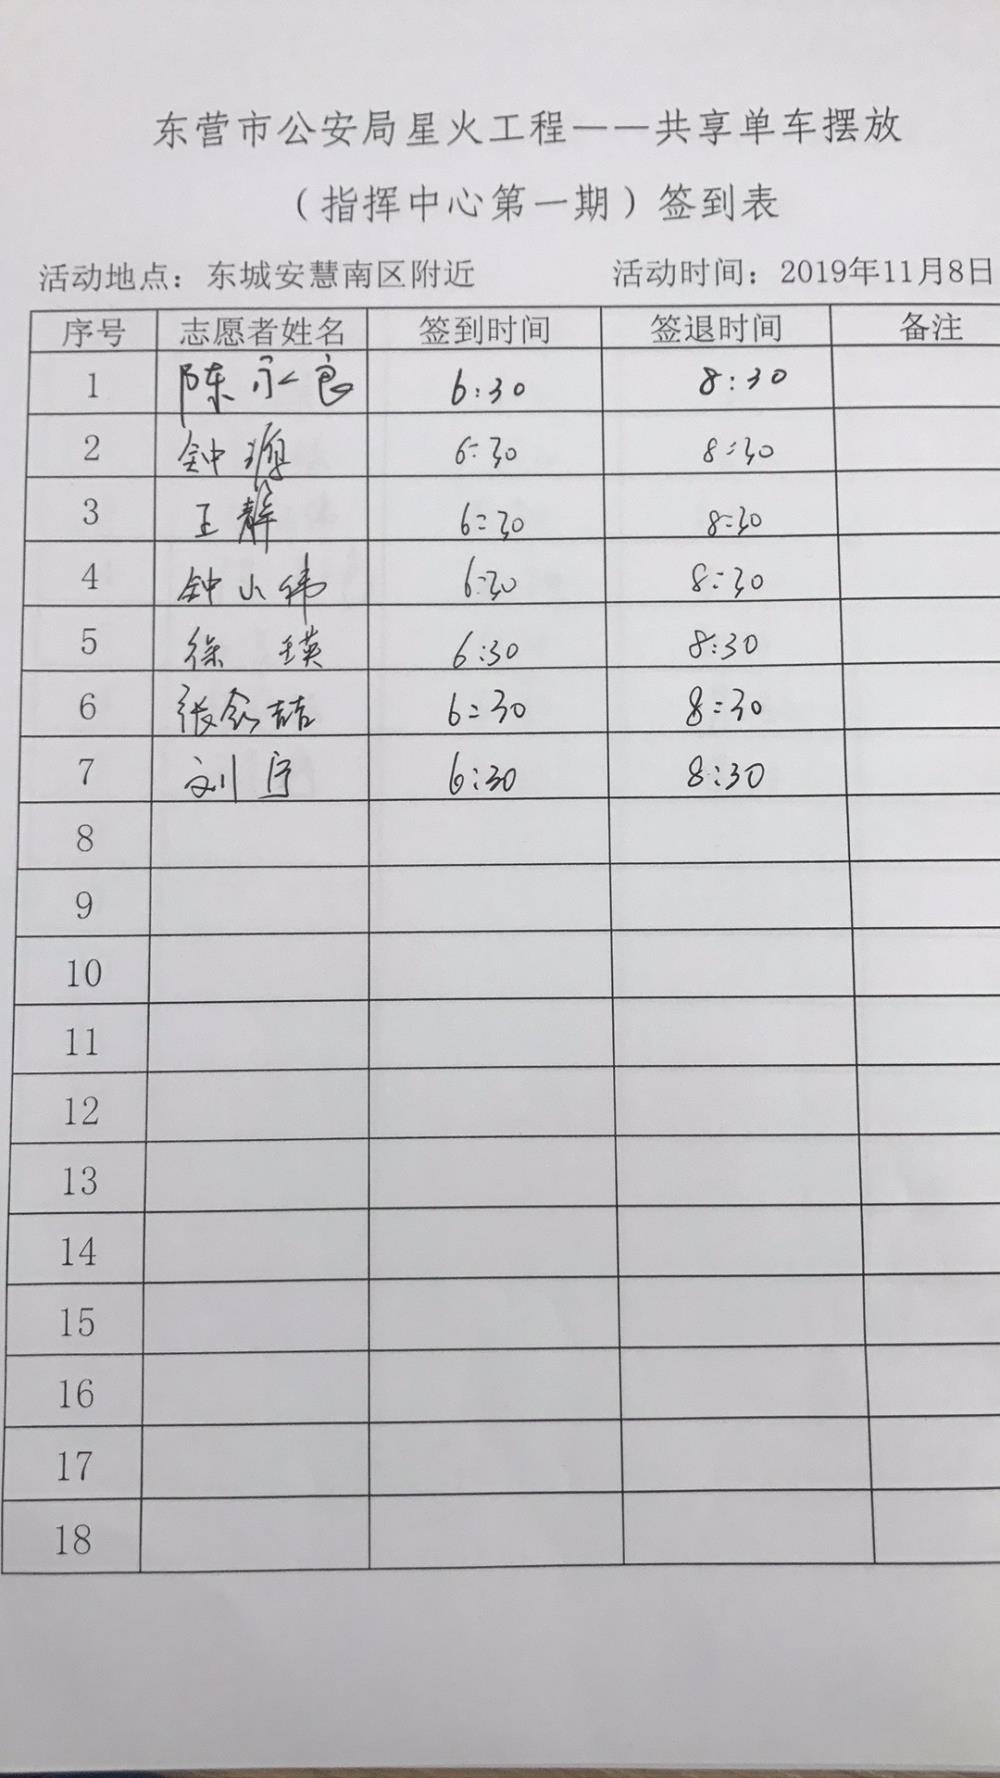 东营市公安局星火工程——共享单车摆放
（指挥中心第一期）签到表
活动地点：东城安慧南区附近 活动时间：2019年11月8日
序号 志愿者姓名 签到时间 签退时间 备注
1 陈永良 6:30 8:30
2 钟 6:30 8:30
3 王静 6:30 8:30
4 钟小伟 6:30 8:30
5 徐瑛 6:30 8:30
6 张 6:30 8:30
7 刘宇 6:30 8:30
8
9
10
11
12
13
14
15
16
17
18